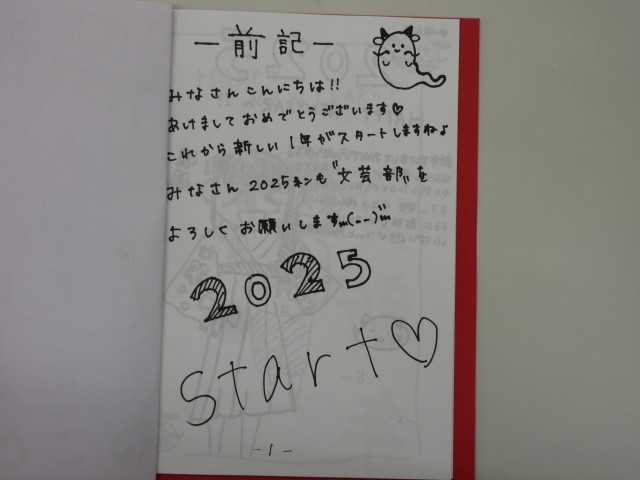 ー前記ー
みなさんこんにちは!!
あけましておめでとうございます♡
これから新しい1年がスタートしますねよ
みなさん2025ネンも"文芸部"を
よろしくお願いしますm(_ _)m
2025
start♡
-1-